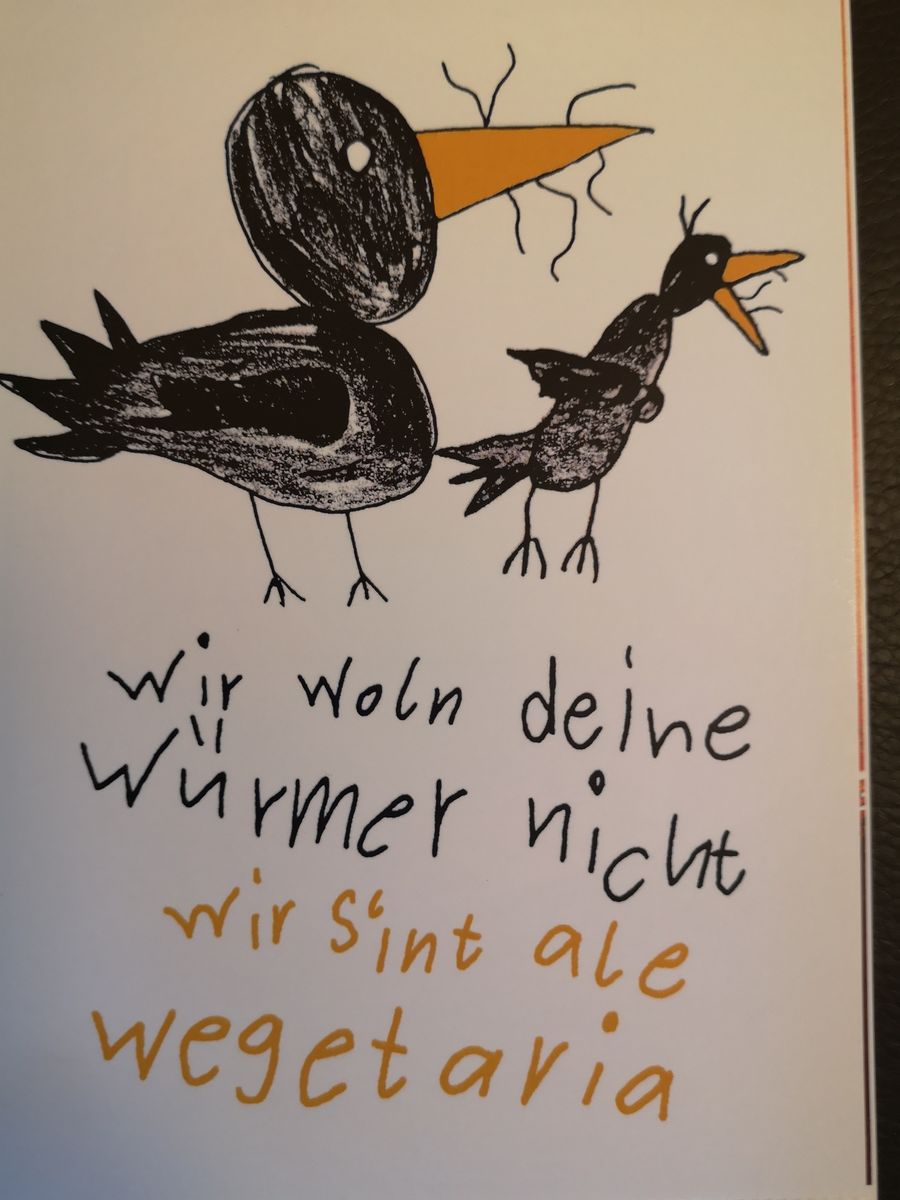 wir woln deine
Würmer nicht
wir sint ale
wegetaria